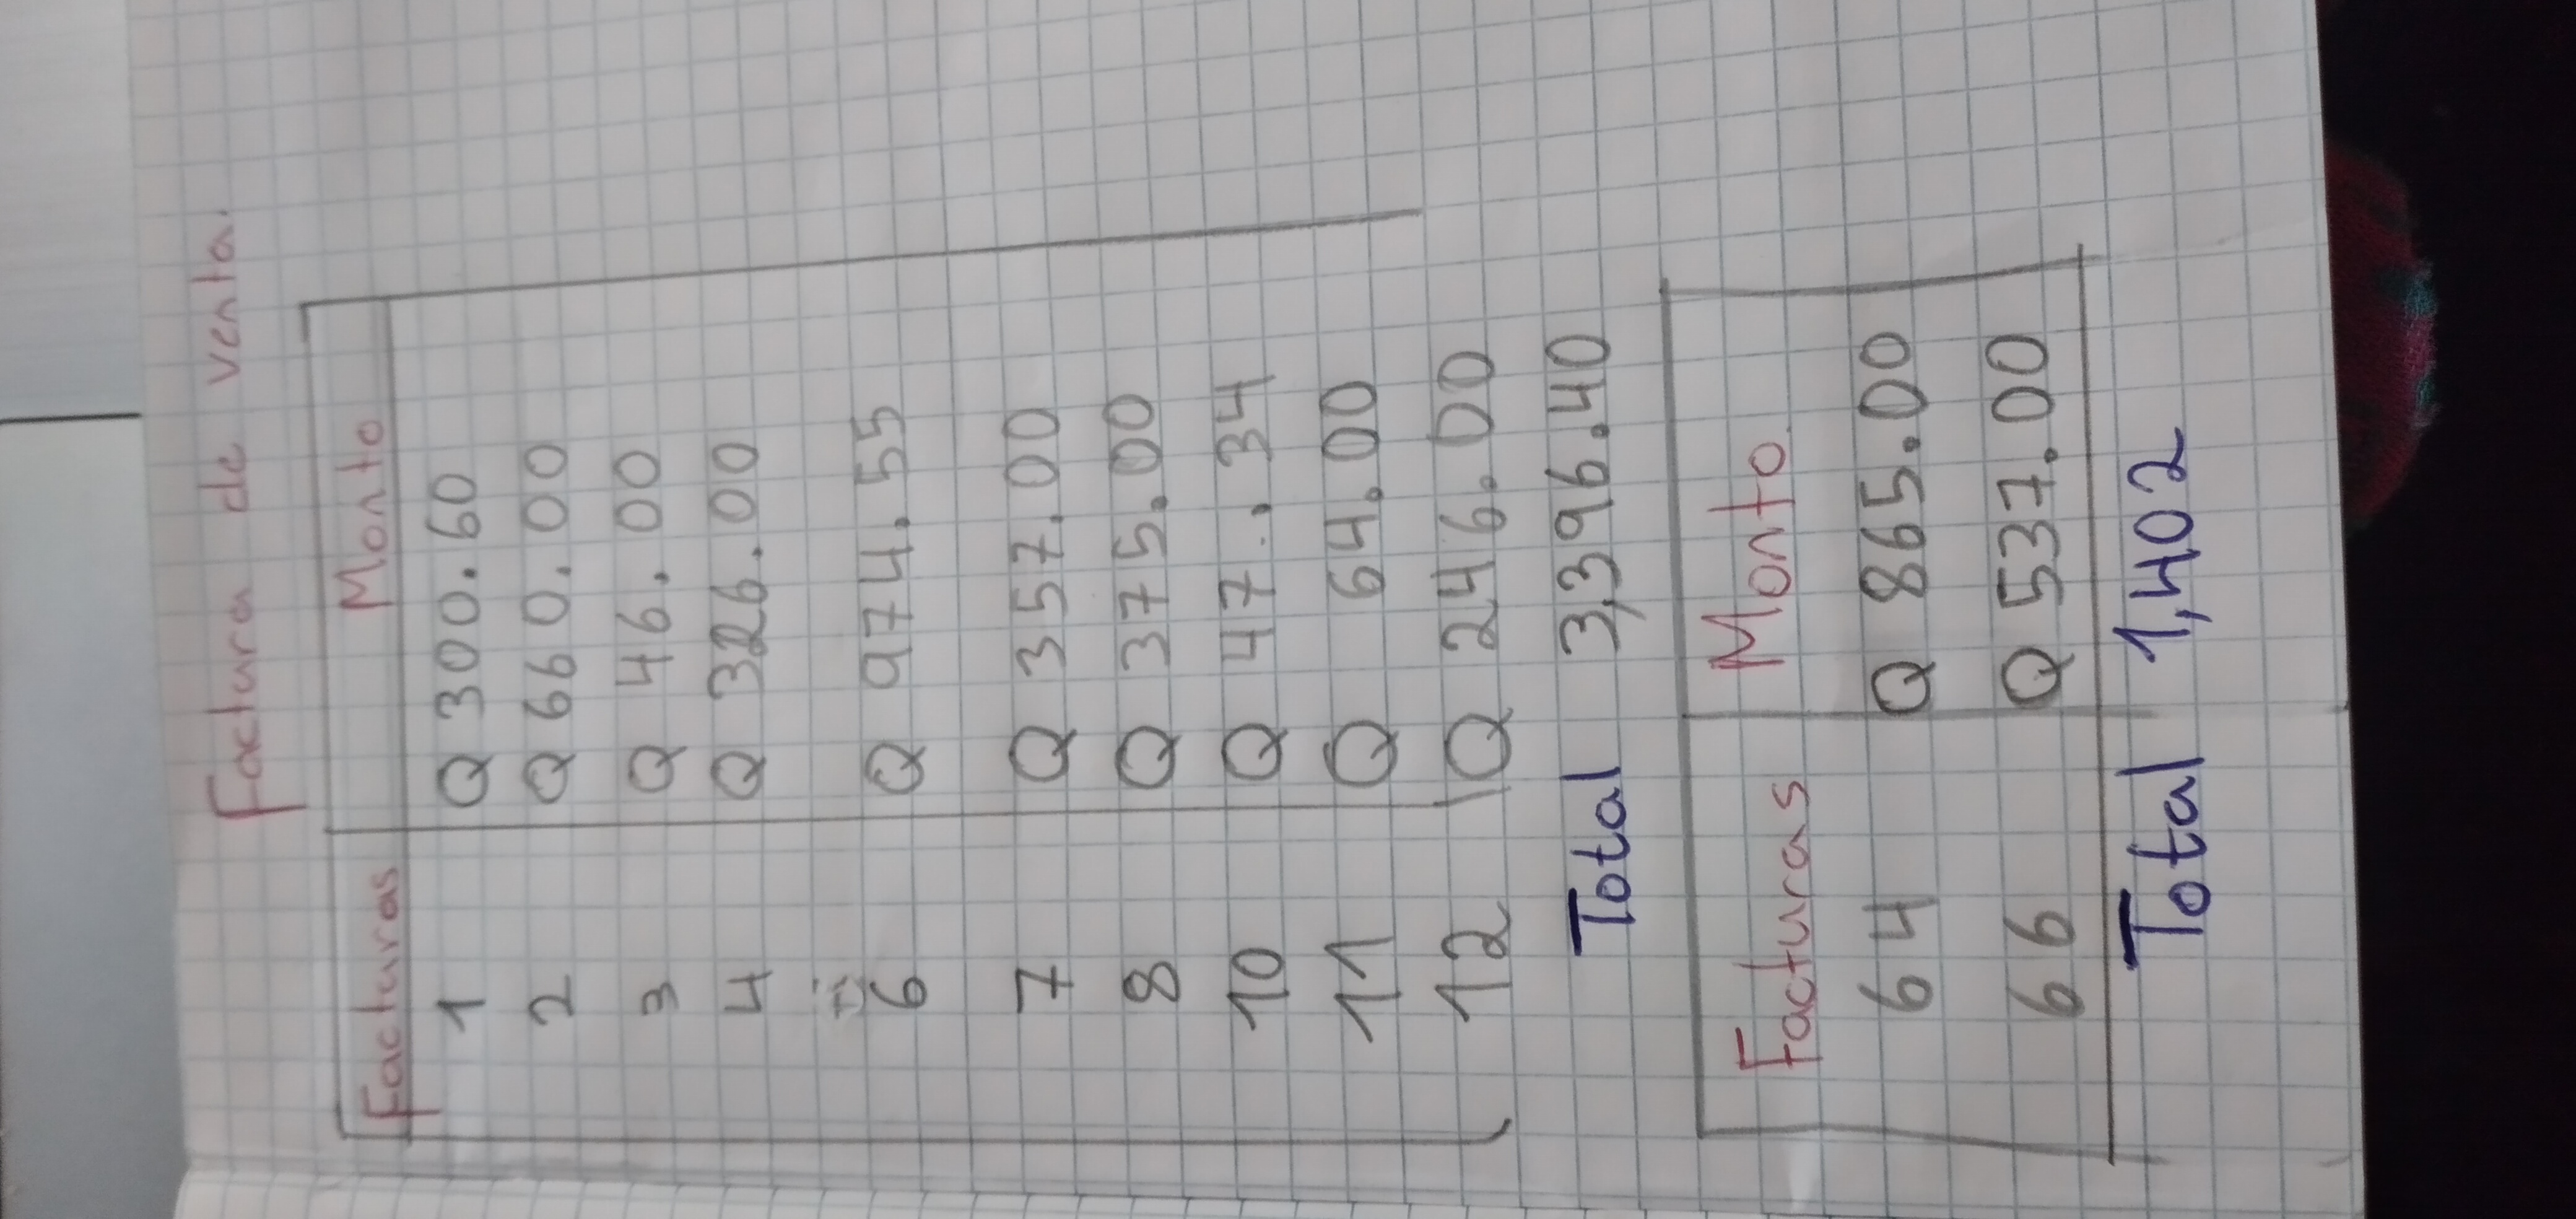 Factura de venta.
Facturas Monto
1 Q 300.60
2 Q 660.00
3 Q 46.00
4 Q 326.00
6 Q 974.55
7 Q 357.00
8 Q 375.00
10 Q 47..34
11 Q 64.00
12 Q 246.00
Total 3,396.40
Facturas Monto
64 Q 865.00
66 Q 537.00
Total 1,402